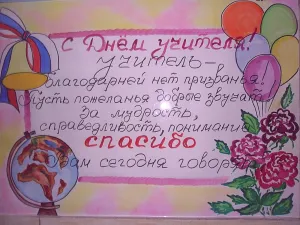 С Днём учителя!
Учитель -
благодарней нет призванья!
Пусть пожеланья добрые звучат
За мудрость,
справедливость, понимание
спасибо
Вам сегодня говорят